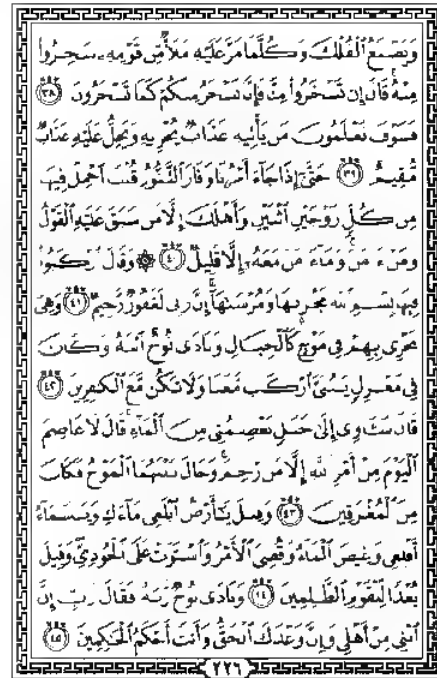 وَيَصْنَعُ ٱلْفُلْكَ وَكُلَّمَا مَرَّ عَلَيْهِ مَلَأٌ مِّن قَوْمِهِۦ سَخِرُوا۟
مِنْهُ قَالَ إِن تَسْخَرُوا۟ مِنَّا فَإِنَّا نَسْخَرُ مِنكُمْ كَمَا تَسْخَرُونَ ٣٨
فَسَوْفَ تَعْلَمُونَ مَن يَأْتِيهِ عَذَابٌ يُخْزِيهِ وَيَحِلُّ عَلَيْهِ عَذَابٌ
مُّقِيمٌ ٣٩ حَتَّىٰٓ إِذَا جَآءَ أَمْرُنَا وَفَارَ ٱلتَّنُّورُ قُلْنَا ٱحْمِلْ فِيهَا
مِن كُلٍّ زَوْجَيْنِ ٱثْنَيْنِ وَأَهْلَكَ إِلَّا مَن سَبَقَ عَلَيْهِ ٱلْقَوْلُ
وَمَنْ ءَامَنَ وَمَآ ءَامَنَ مَعَهُۥٓ إِلَّا قَلِيلٌ ٤٠ ۞ وَقَالَ ٱرْكَبُوا۟
فِيهَا بِسْمِ ٱللَّهِ مَجْر۪ىٰهَا وَمُرْسَىٰهَآ إِنَّ رَبِّى لَغَفُورٌ رَّحِيمٌ ٤١ وَهِىَ
تَجْرِى بِهِمْ فِى مَوْجٍ كَٱلْجِبَالِ وَنَادَىٰ نُوحٌ ٱبْنَهُۥ وَكَانَ
فِى مَعْزِلٍ يَـٰبُنَىَّ ٱرْكَب مَّعَنَا وَلَا تَكُن مَّعَ ٱلْكَـٰفِرِينَ ٤٢
قَالَ سَـَٔاوِىٓ إِلَىٰ جَبَلٍ يَعْصِمُنِى مِنَ ٱلْمَآءِ قَالَ لَا عَاصِمَ
ٱلْيَوْمَ مِنْ أَمْرِ ٱللَّهِ إِلَّا مَن رَّحِمَ وَحَالَ بَيْنَهُمَا ٱلْمَوْجُ فَكَانَ
مِنَ ٱلْمُغْرَقِينَ ٤٣ وَقِيلَ يَـٰٓأَرْضُ ٱبْلَعِى مَآءَكِ وَيَـٰسَمَآءُ
أَقْلِعِى وَغِيضَ ٱلْمَآءُ وَقُضِىَ ٱلْأَمْرُ وَٱسْتَوَتْ عَلَى ٱلْجُودِىِّ وَقِيلَ
بُعْدًا لِّلْقَوْمِ ٱلظَّـٰلِمِينَ ٤٤ وَنَادَىٰ نُوحٌ رَّبَّهُۥ فَقَالَ رَبِّ إِنَّ
ٱبْنِى مِنْ أَهْلِى وَإِنَّ وَعْدَكَ ٱلْحَقُّ وَأَنتَ أَحْكَمُ ٱلْحَـٰكِمِينَ ٤٥
٢٢٦